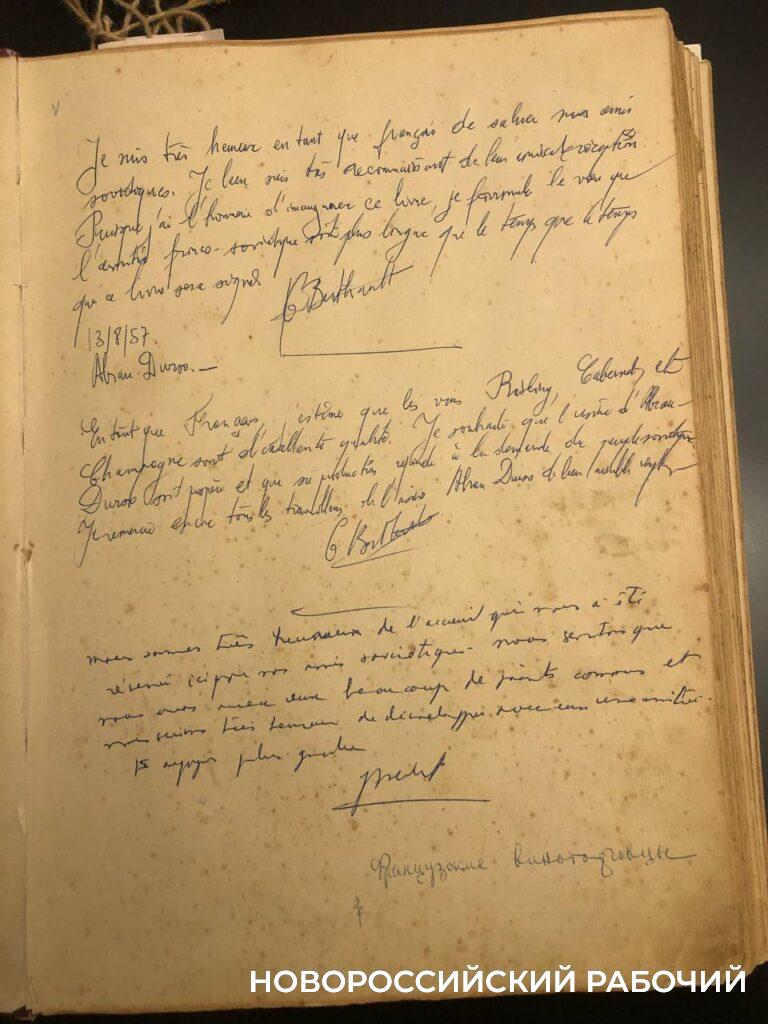 Je suis très heureux en tant que français de saluer nos amis
soviétiques. Je leur suis très reconnaissant de leur amicale réception.
Puisque j'ai l'honneur d'inaugurer ce livre, je formule le vœu que
l'amitié franco-soviétique soit plus longue que le temps que
que ce livre sera signé
Berthault
13/8/57.
Abrau-Durso.—
En tant que Français, j'estime que les vins Riesling, Cabernet, et
Champagne sont d'excellente qualité. Je souhaite que l'usine d'Abrau-
Durso soit prospère et que sa production réponde à la demande du peuple soviétique
Je remercie encore tous les travailleurs de l'usine Abrau Durso de leur
nous sommes très heureux de l'accueil qui nous a été
réservé ici par nos amis soviétiques. nous sentons que
nous avons avec eux beaucoup de points communs et
nous serions très heureux de développer avec eux une amitié
plus grande
Французские виноторговцы
НОВОРОССИЙСКИЙ РАБОЧИЙ